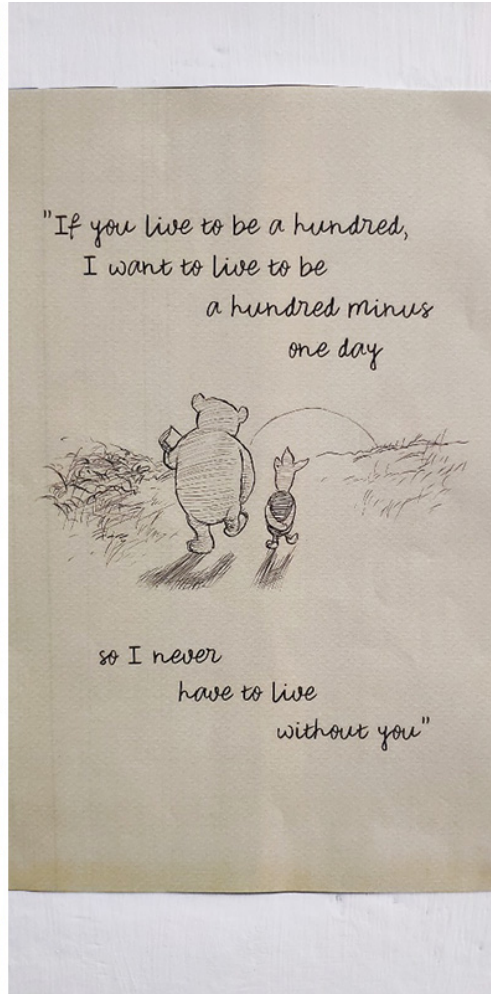 "If you live to be a hundred,
I want to live to be
a hundred minus
one day
so I never
have to live
without you"